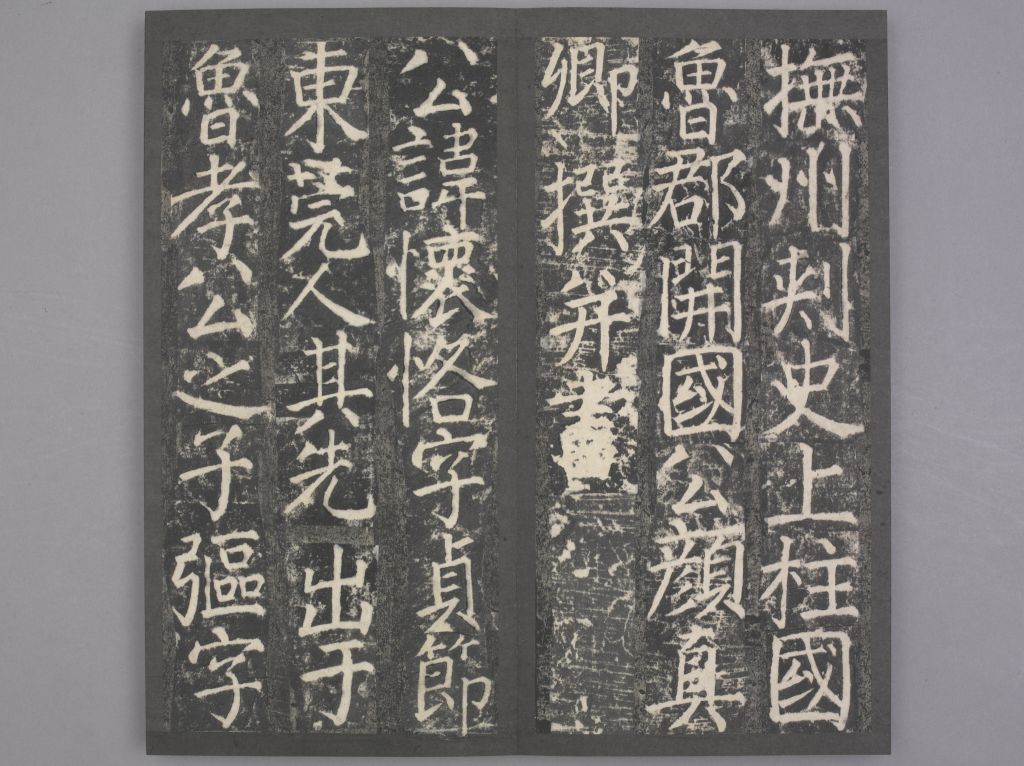 撫州刺史上柱國
魯郡開國公顏真
卿撰并書
公諱懷恪字貞節
東莞人其先出于
魯孝公之子彄字